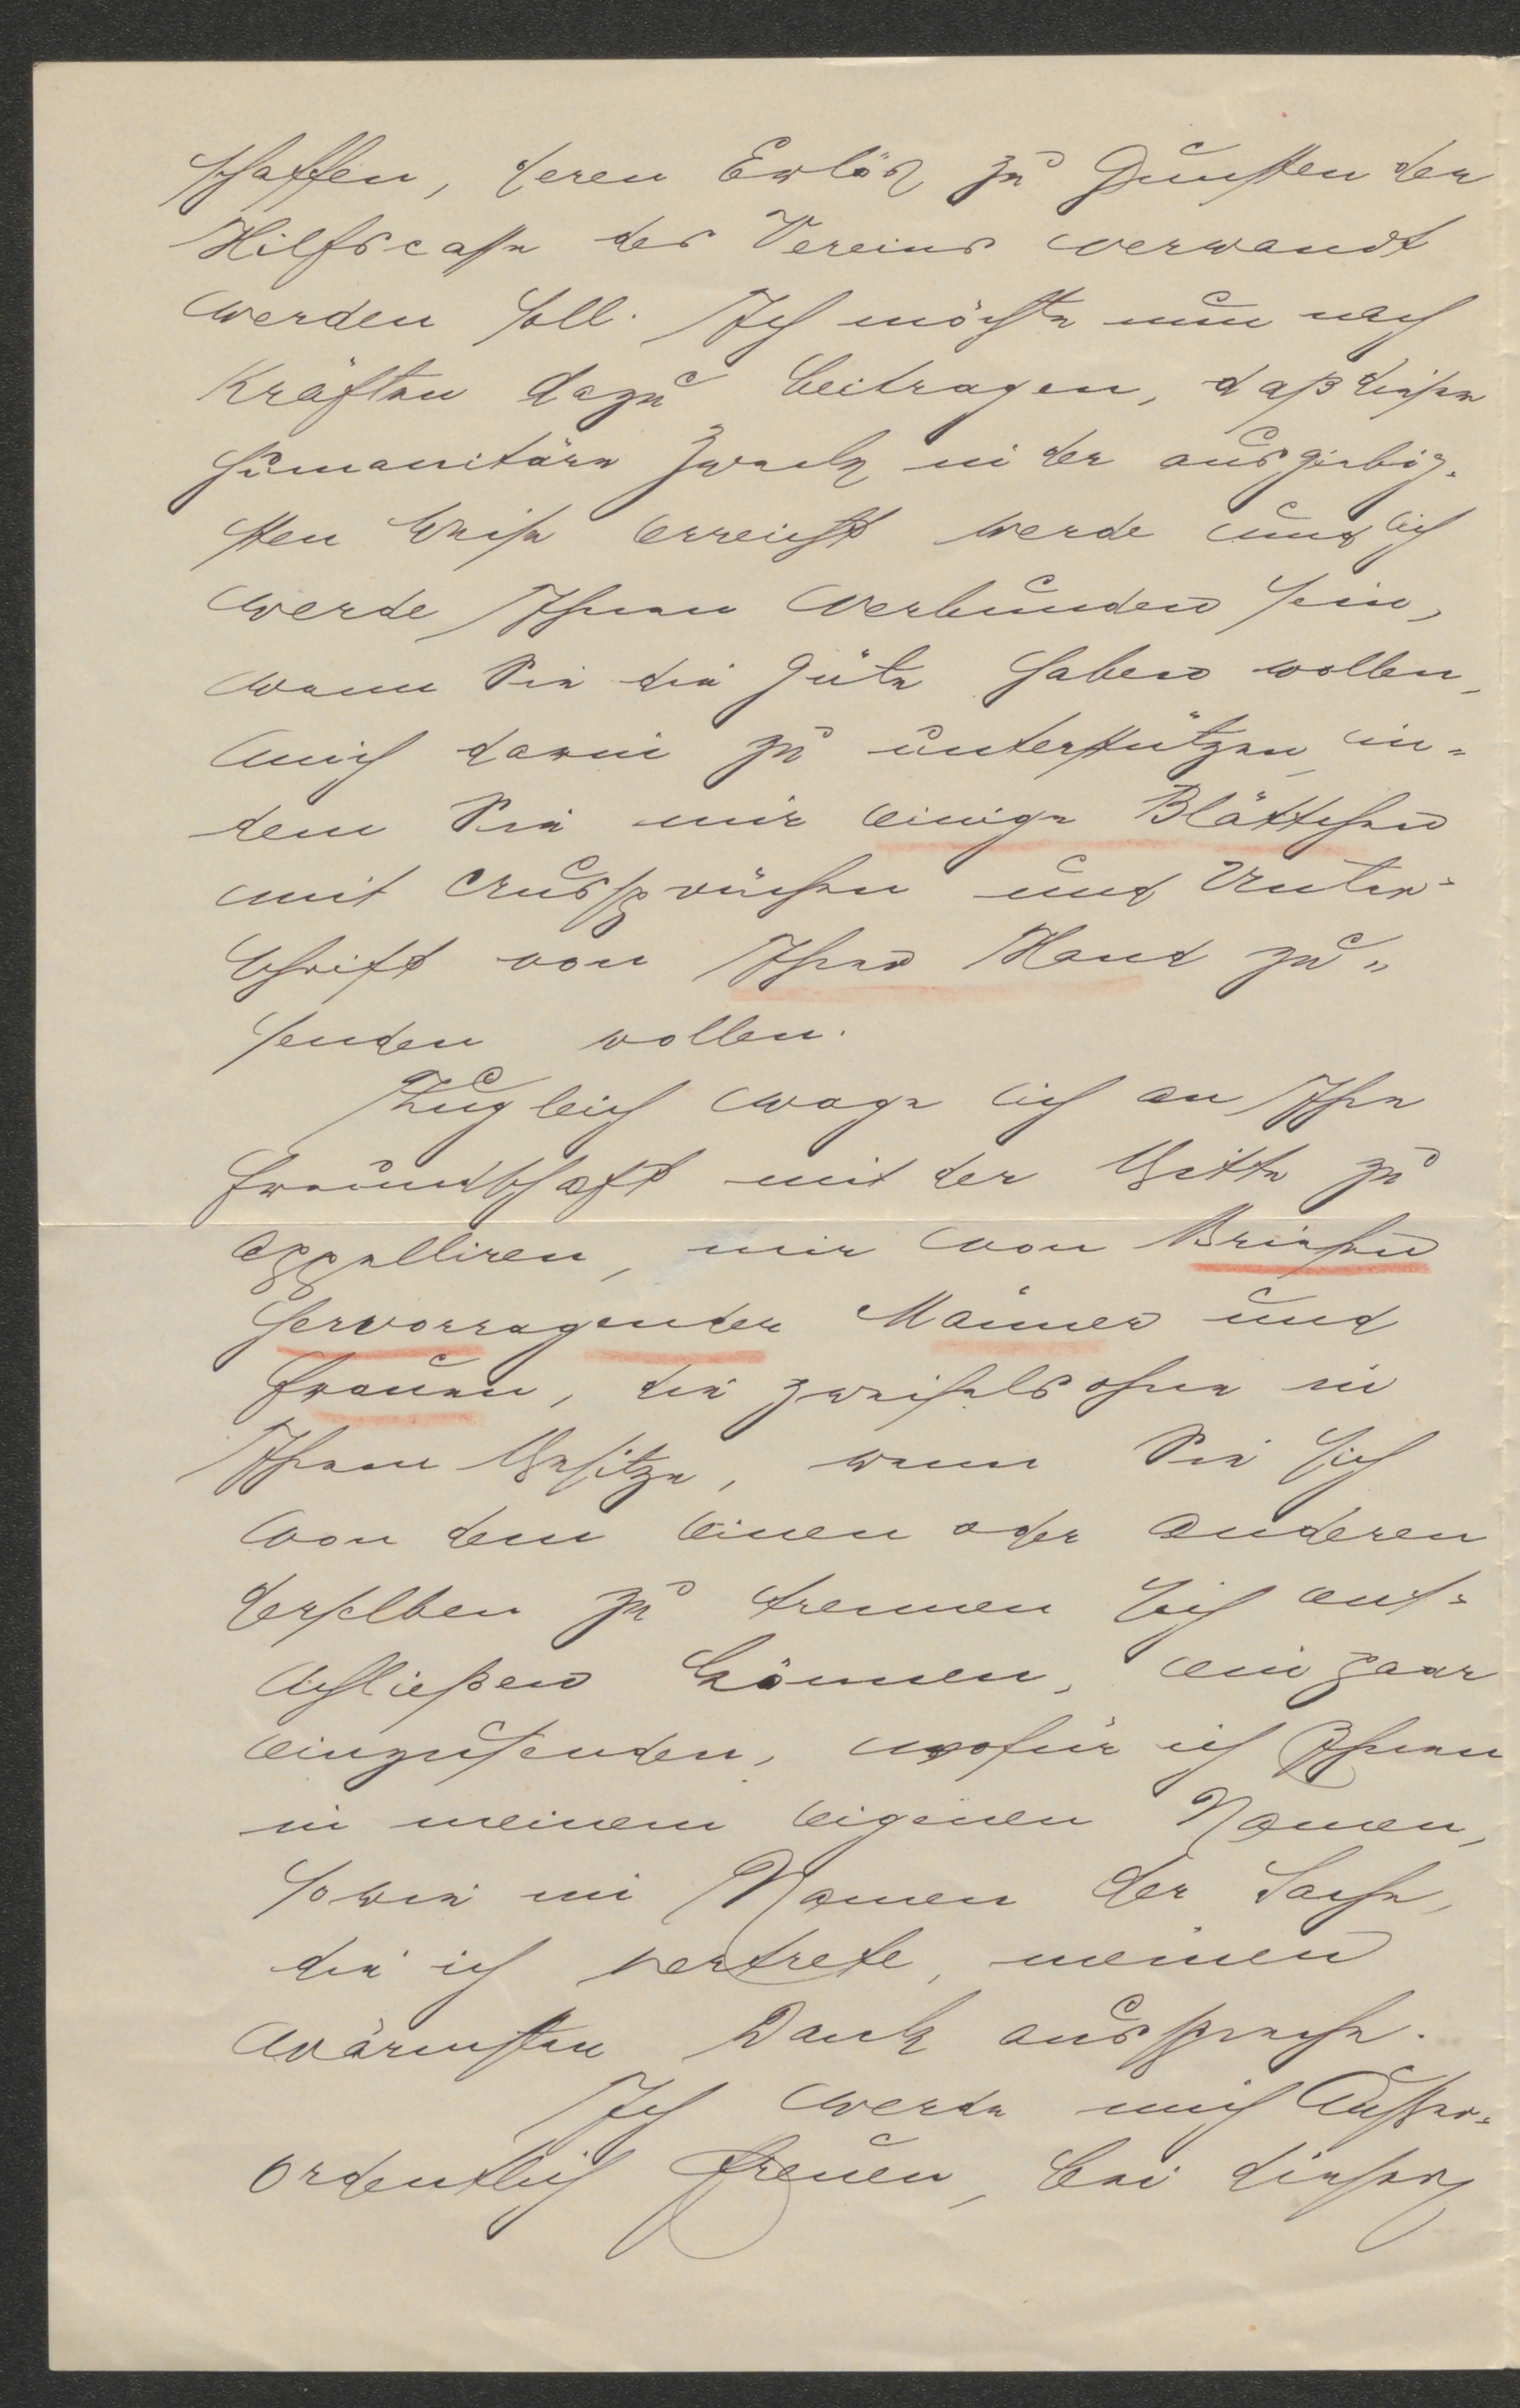 schaffen, deren Erlös zu Gunsten der
Hilfscasse des Vereins verwandt
werden soll. Ich möchte nun nach
Kräften dazu beitragen, daß dieser
humanitäre Zweck in der ausgiebig-
sten Weise erreicht werde und ich
werde Ihnen verbunden sein,
wenn Sie die Güte haben wollen,
mich darin zu unterstützen, in-
dem Sie mir einige Blättchen
mit Aussprüchen und Unter-
schrift von Ihrer Hand zu-
senden wollen.
Zugleich wage ich an Ihre
Freundschaft mit der Bitte zu
appelliren, mir von Briefen
hervorragender Männer und
Frauen, die zweifelsohne in
Ihrem Besitze, wenn Sie sich
von dem einen oder anderen
derselben zu trennen sich ent-
schließen können, ein paar
einzusenden, wofür ich Ihnen
in meinem eigenen Namen,
sowie im Namen der Sache,
die ich vertrete, meinen
wärmsten Dank ausspreche.
Ich werde mich außer-
ordentlich freuen, bei dieser